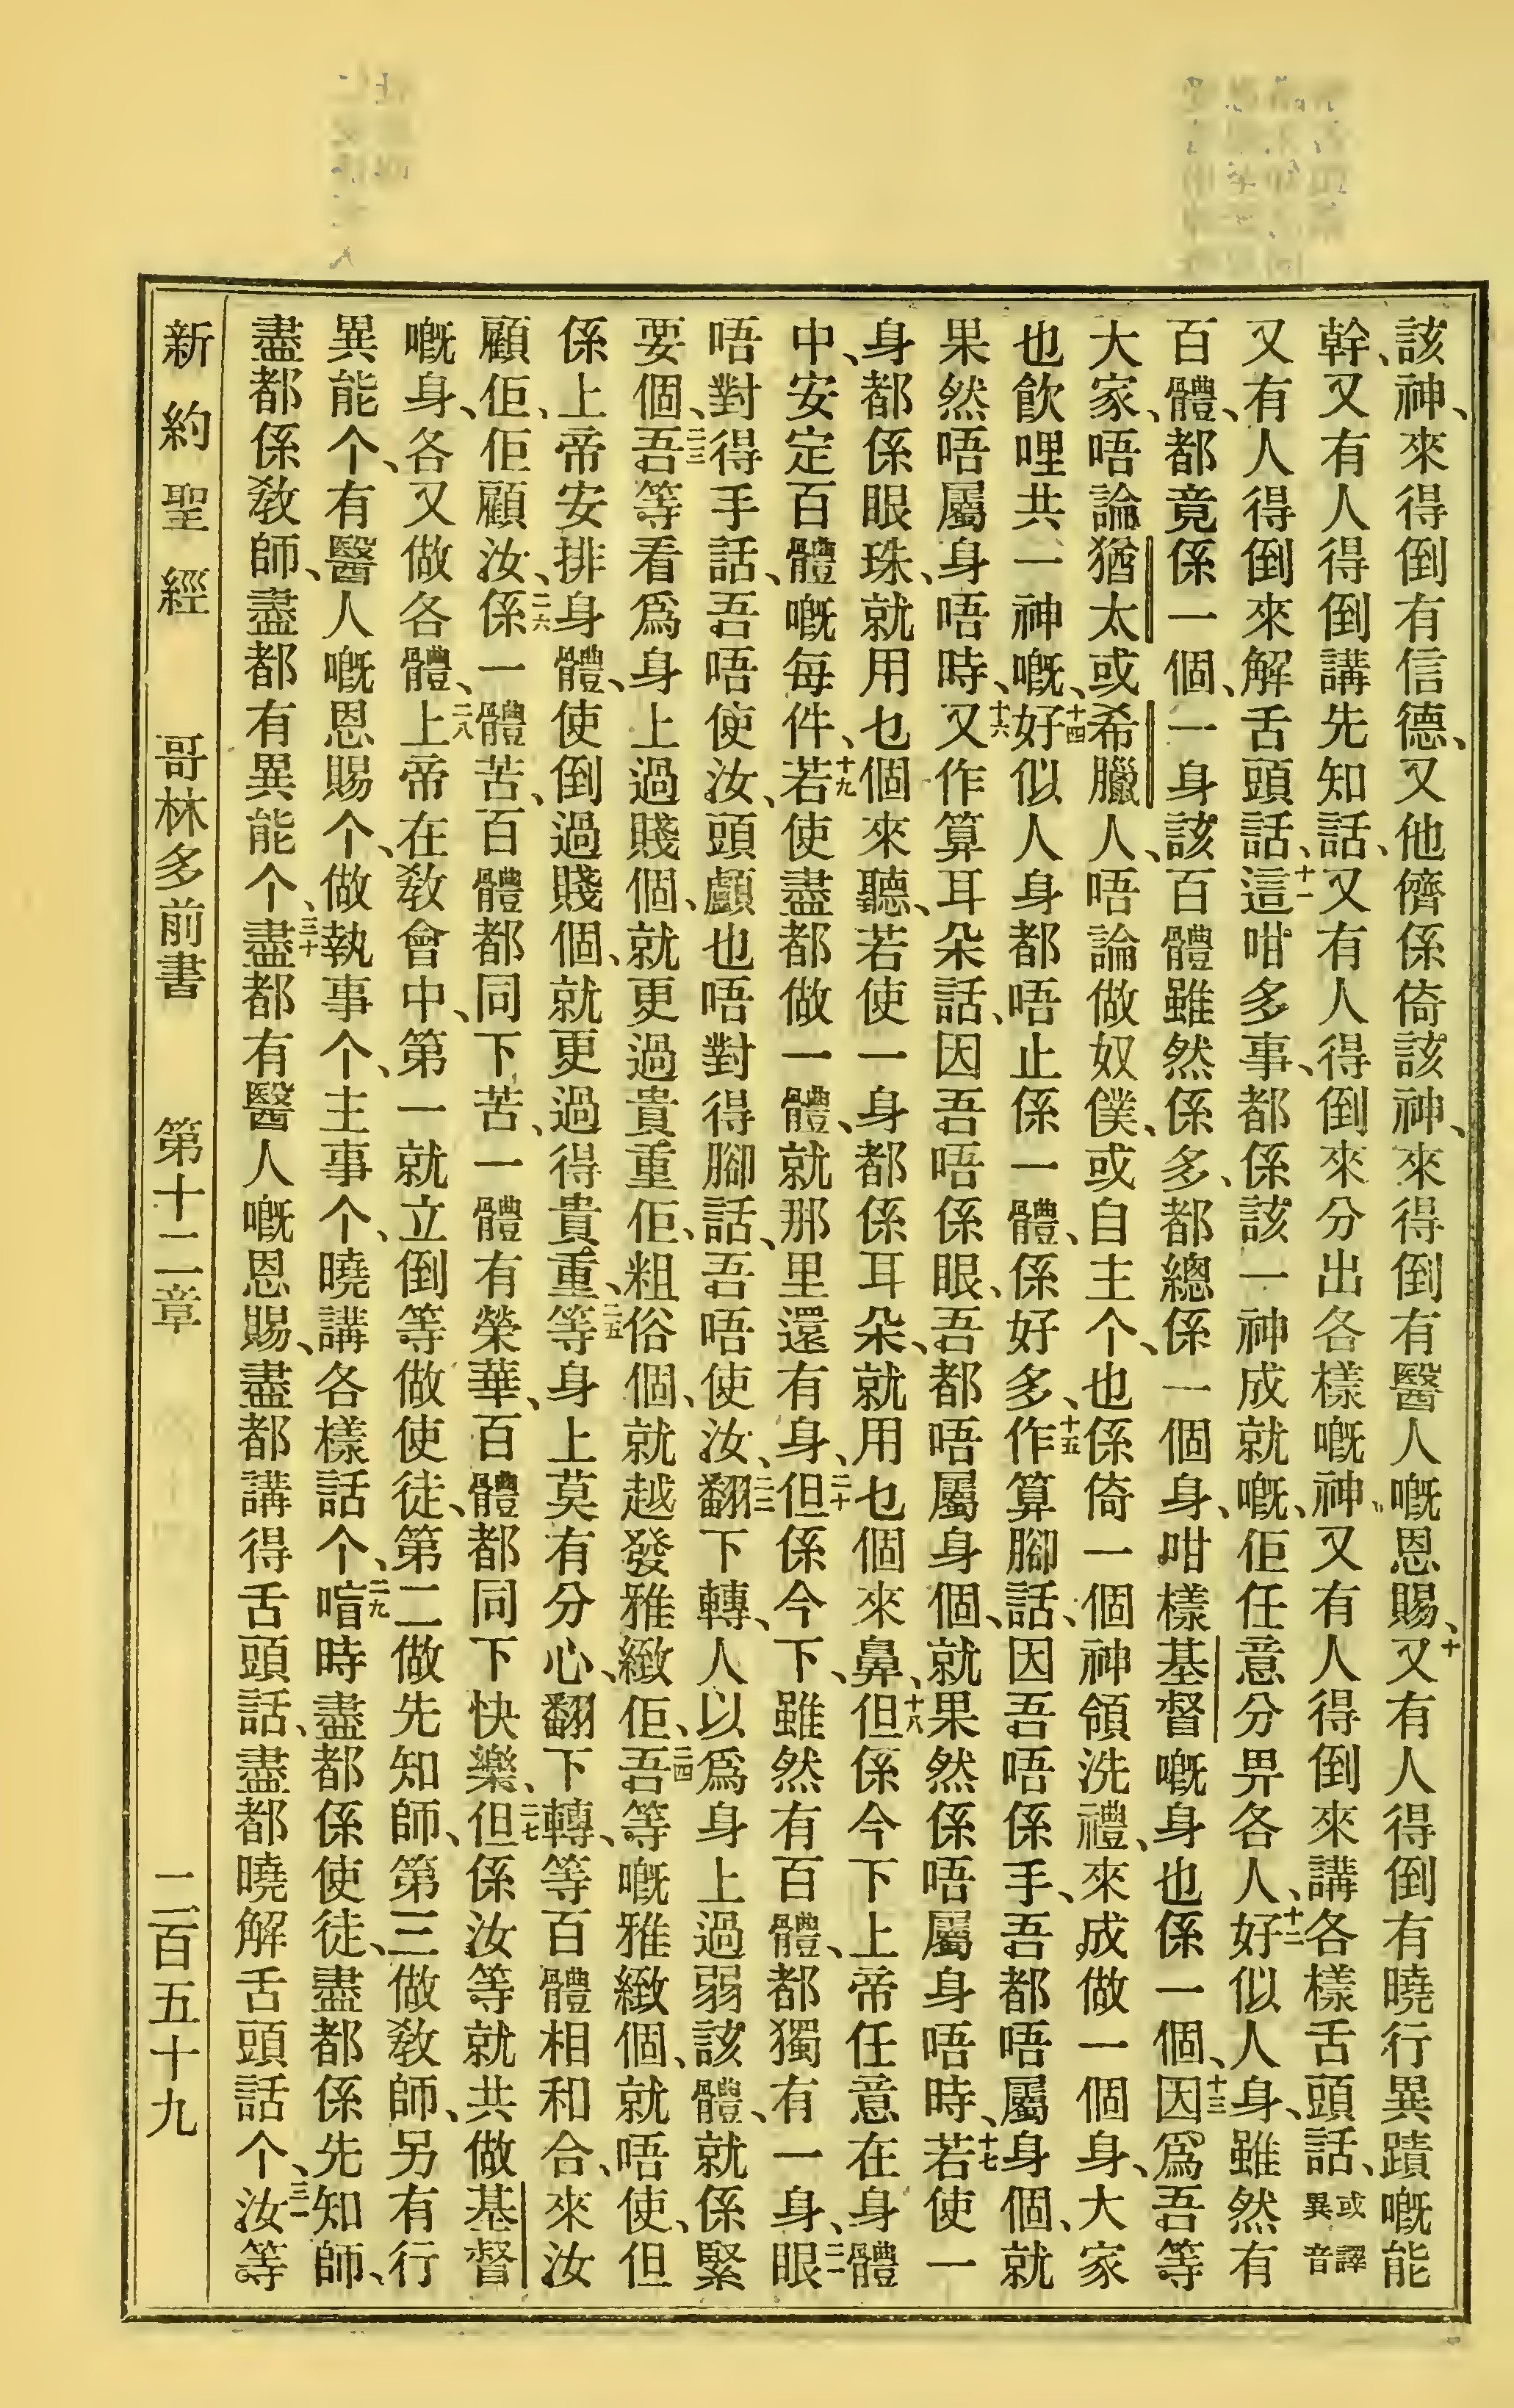 該神、來得倒有信德、又他儕係倚該神、來得倒有醫人嘅恩賜、十又有人得倒有曉行異蹟嘅能
幹、又有人得倒講先知話、又有人得倒來分出各樣嘅神、又有人得倒來講各樣舌頭話、或譯異音
又有人得倒來解舌頭話、十一這咁多事、都係該一神成就嘅、佢任意分畀各人、十二好似人身、雖然有
百體、都竟係一個、一身該百體雖然係多、都總係一個身、咁樣基督嘅身也係一個、十三因爲吾等
大家、唔論猶太或希臘人、唔論做奴僕、或自主个、也係倚一個神領洗禮、來成做一個身、大家
也飲哩共一神嘅、十四好似人身都唔止係一體、係好多、十五作算腳話、因吾唔係手、吾都唔屬身個、就
果然唔屬身唔時、十六又作算耳朵話、因吾唔係眼、吾都唔屬身個、就果然係唔屬身唔時、十七若使一
身都係眼珠、就用乜個來聽、若使一身都係耳朵、就用乜個來鼻、十八但係今下上帝任意在身體
中、安定百體嘅每件、十九若使盡都做一體、就那里還有身、二十但係今下、雖然有百體、都獨有一身、二一眼
唔對得手話、吾唔使汝、頭顱也唔對得腳話、吾唔使汝、二二翻下轉、人以爲身上過弱該體、就係緊
要個、二三吾等看爲身上過賤個、就更過貴重佢、粗俗個、就越發雅緻佢、二四吾等嘅雅緻個、就唔使、但
係上帝安排身體、使倒過賤個、就更過得貴重、二五等身上莫有分心、翻下轉、等百體相和合、來汝
顧佢、佢顧汝、二六係一體苦、百體都同下苦、一體有榮華、百體都同下快樂、二七但係汝等就共做基督
嘅身、各又做各體、二八上帝在敎會中、第一就立倒等做使徒、第二做先知師、第三做敎師、另有行
異能个、有醫人嘅恩賜个、做執事个、主事个、曉講各樣話个、二九喧時盡都係使徒、盡都係先知師、
盡都係敎師、盡都有異能个、三十盡都有醫人嘅恩賜、盡都講得舌頭話、盡都曉解舌頭話个、三一汝等
新約聖經 哥林多前書 第十二章 二百五十九